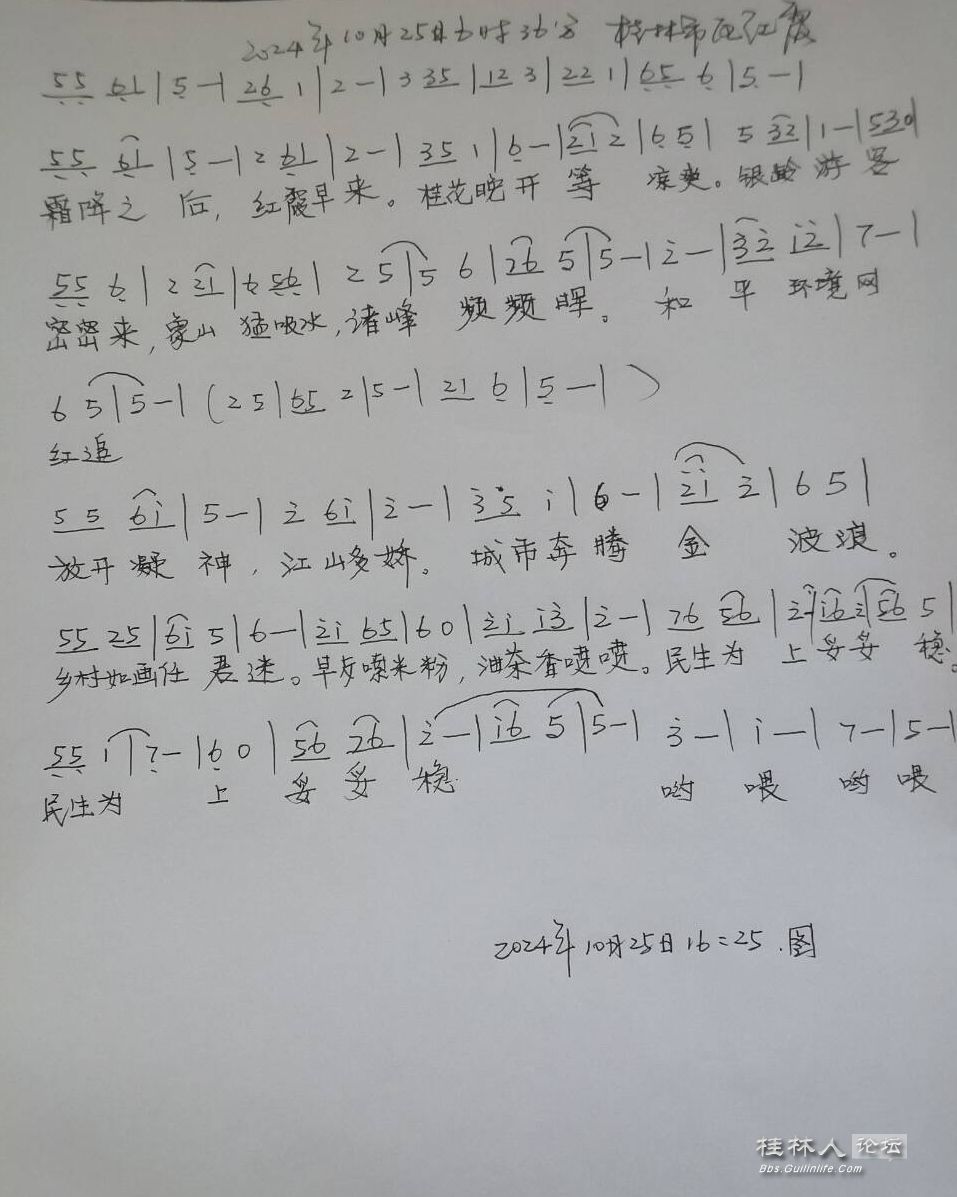 2024年10月25日6时36分 桂林市见红霞
55 61 | 5 - | 26 1 | 2 - | 3 35 | 12 3 | 22 1 | 65 6 | 5 - |
55 61 | 5 - | 2 61 | 2 - | 35 1 | 6 - | 21 2 | 6 5 | 5 32 | 1 - | 530 |
霜降之后,红霞早来。桂花晚开等凉爽。银龄游客
55 6 | 2 21 | 6 56 | 2 5 | 5 6 | 26 5 | 5 - | 2 - | 32 12 | 7 - |
密密来,象山猛吸水,诸峰频频晖。和平环境网
6 5 | 5 - | (2 5 | 65 2 | 5 - | 21 6 | 5 - | )
红追
55 61 | 5 - | 2 61 | 2 - | 35 1 | 6 - | 21 2 | 6 5 |
放开凝神,江山多娇。城市奔腾金波浪。
55 25 | 61 5 | 6 - | 21 65 | 6 0 | 21 13 | 2 - | 76 56 | 2 - | 16 2 | 56 5 |
乡村如画任君迷。早与嗦米粉,油茶香喷喷。民生为上妥妥稳。
55 1 | 7 - | 6 0 | 56 76 | 2 - | 16 5 | 5 - | 3 - | 1 - | 7 - | 5 - |
民生为上妥妥稳 哟喂哟喂
2024年10月25日16:25.图
桂林人论坛
Bbs.Guilinlife.Com